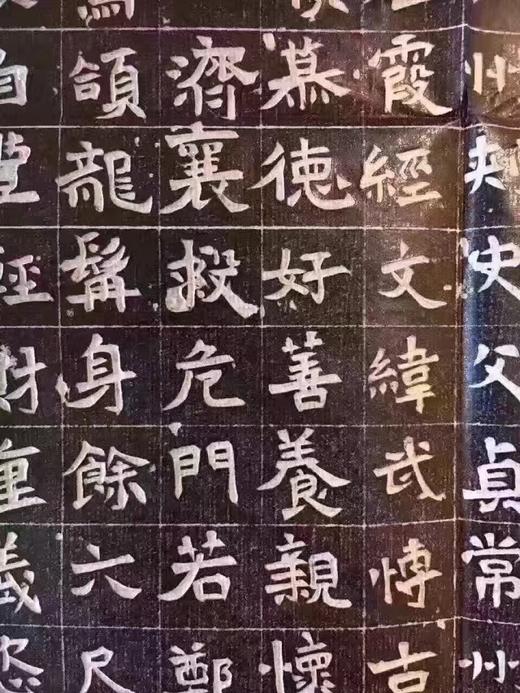 州刺史父貞常州
霞經文緯武愽古
慕德好善養親懷
濟襄救危門若鄭
頜龍髯身餘六尺
自輕財重義